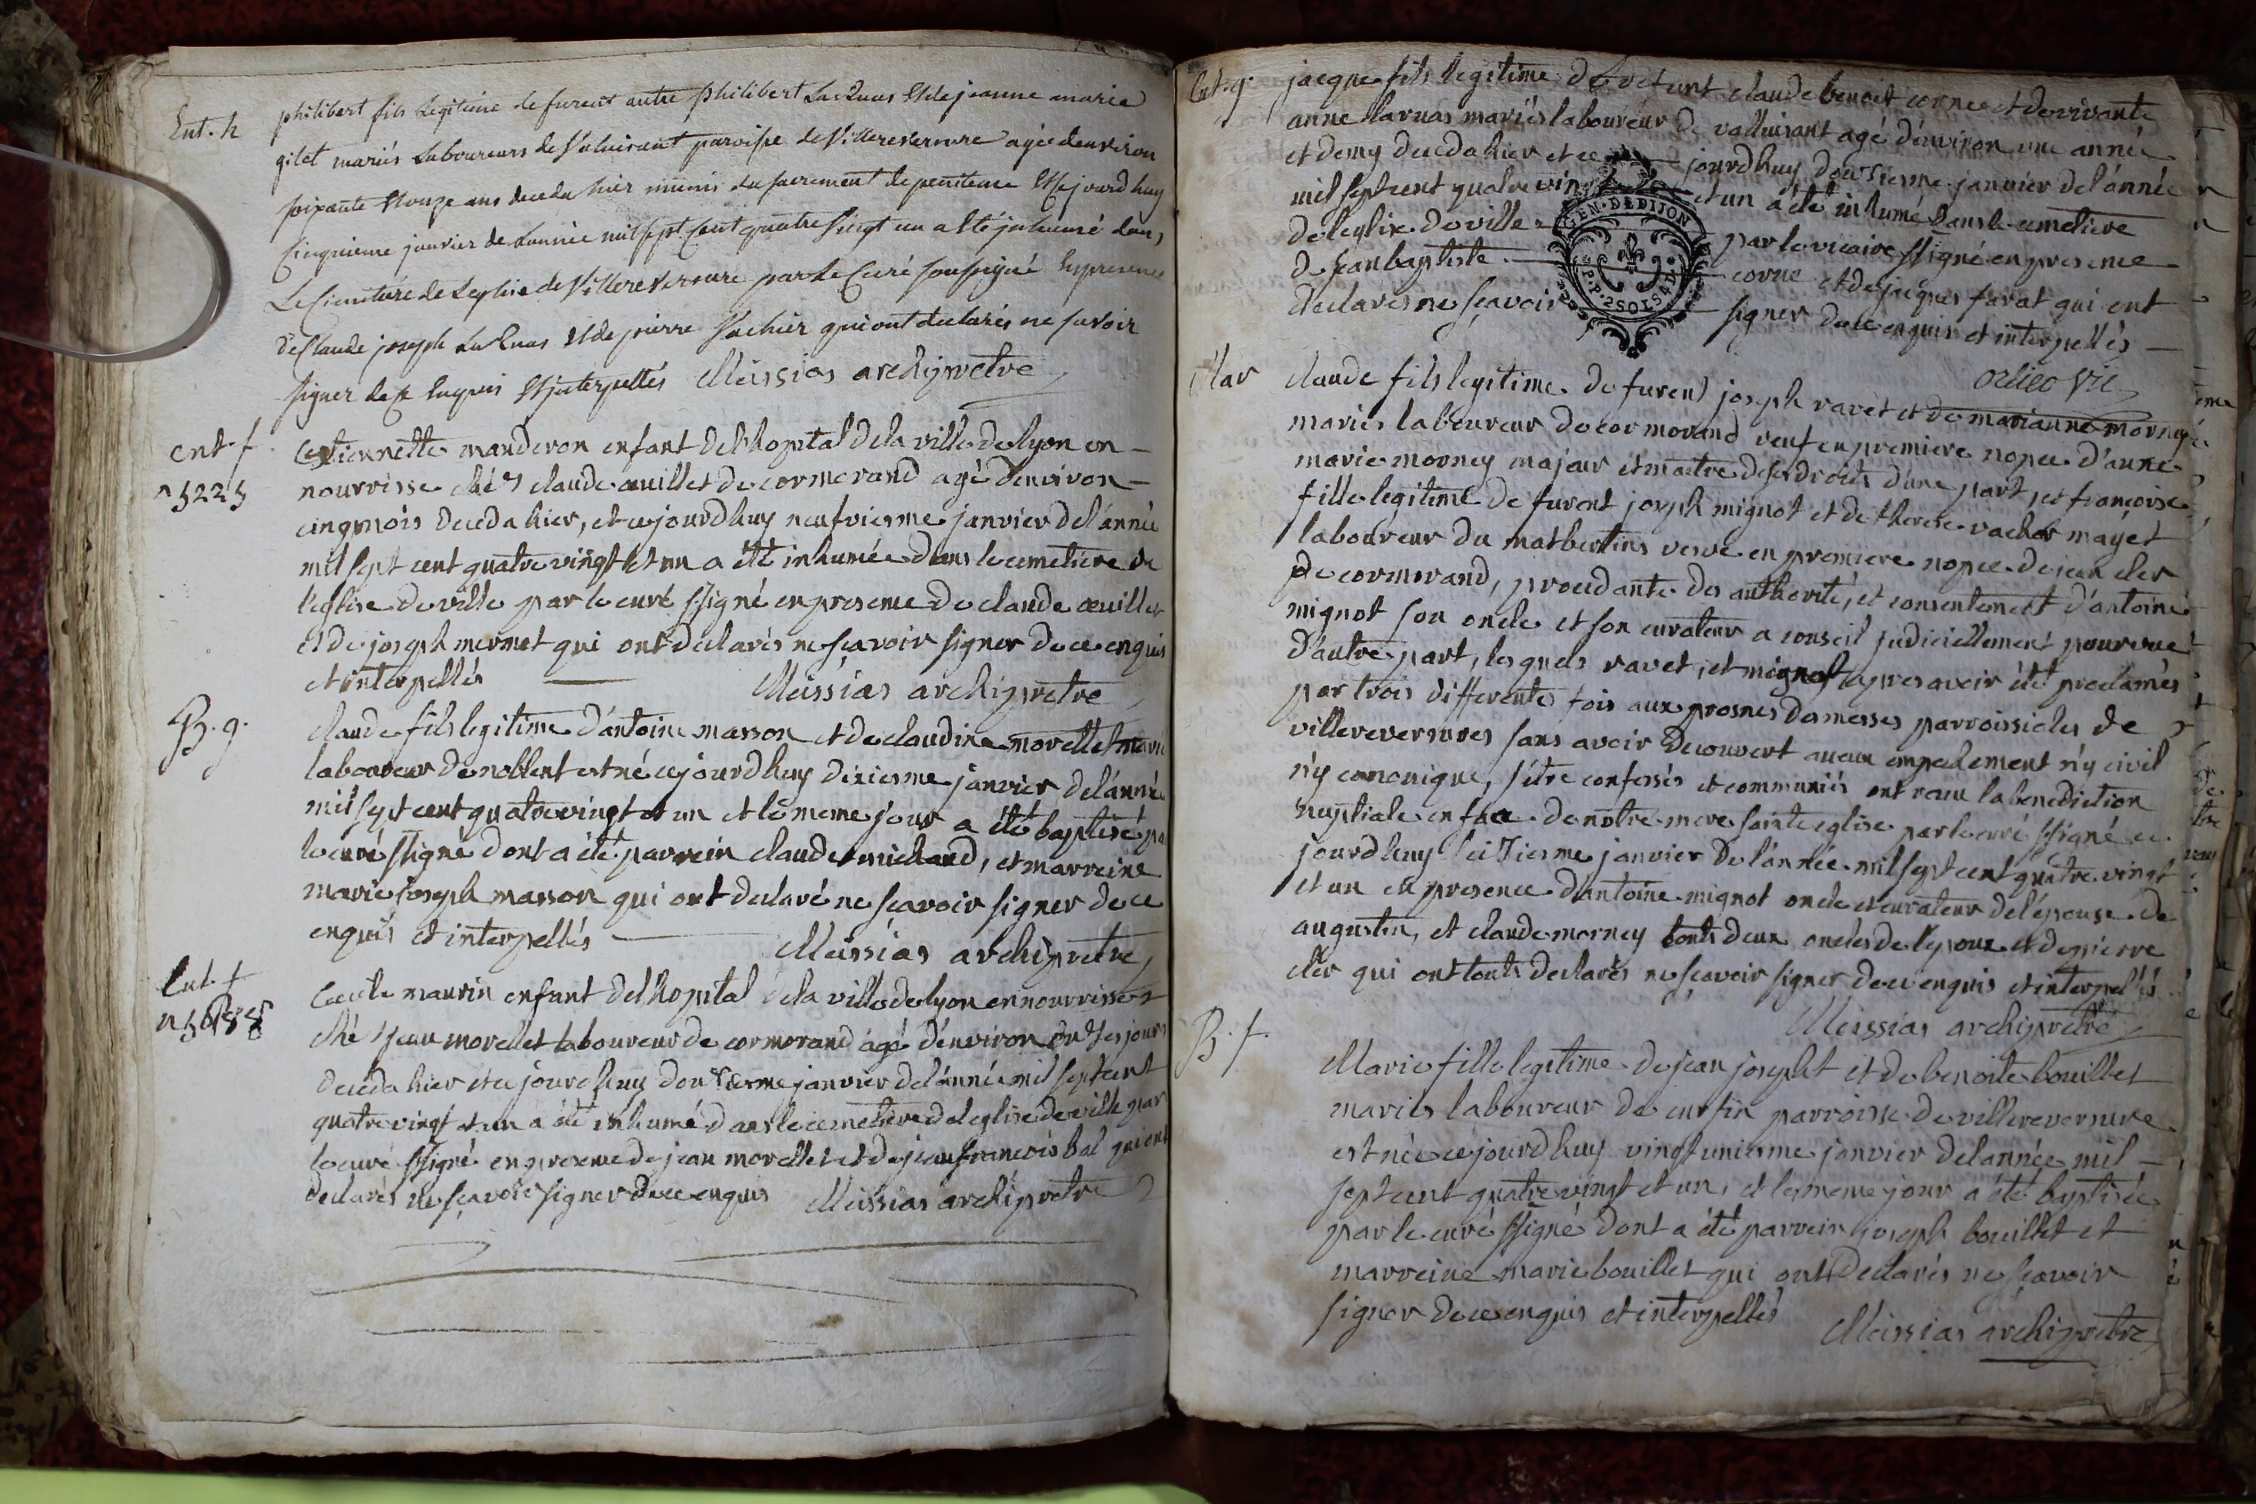 Ent. h
philibert fils Legitime de furent autre philibert LaRuas Et de jeanne marie
gilet mariés Laboureurs de Valuisant paroisse de Villereversure agé denviron
soixante et onze ans decedé hier munis du sacrement de penitence Et cejourdhuy
Cinquieme janvier de Lannée mil sept Cent quatre Vingt un a Eté inhumé dans
Le Cimetière de Leglise de Villereversure par Le Curé soussigné En presence
de Claude joseph LaRuas Et de pierre Vachier qui ont declarés ne savoir
signer de ce Enquis Et interpellés Messias archipretre
ent. f.
n 5225
Estiennette manderon enfant de l'hopital de la ville de lyon en
nourrisse chéz claude œuillet de cormorand agé d'environ
cinq mois deceda hier, et cejourdhuy neufviesme janvier de l'année
mil sept cent quatre vingt et un a été inhumée dans le cemetiere de
l'eglise de ville par le curé ssigné en presence de claude œuillet
et de joseph mermet qui ont declarés ne sçavoir signer de ce enquis
et interpellés Messias archipretre
B. g.
claude fils legitime d'antoine masson et de claudine morellet mariés
laboureur de noblent est né cejourdhuy dixiesme janvier de l'année
mil sept cent quatre vingt et un et le meme jour a été baptisé par
le curé ssigné dont a été parrein claude michaud, et marreine
marie joseph masson qui ont declaré ne sçavoir signer de ce
enquis et interpellés Messias archipretre
Ent. f
n 5688
Cecile maurin enfant de l'hopital de la ville de lyon en nourrisse
ché z jean morellet laboureur de cormorand agé d'environ onze jours
deceda hier et ce jourdhuy douziesme janvier de l'année mil sept cent
quatre vingt et un a été inhumé dans le cemetiere de l'eglise de ville par
le curé ssigné en presence de jean morellet et de jean françois bal qui ont
declarés ne sçavoir signer de ce enquis Messias archipretre
Ent. g.
jacque fils legitime de vivant claude benoit cornet et de vivante
anne laruas mariés laboureur de valluisant agé d'environ une année
et demy deceda hier et ce jourdhuy douziesme janvier de l'année
mil sept cent quatre vingt et un a été inhumé dans le cemetiere
de l'eglise de ville par le vicaire ssigné en presence
de jean baptiste corne et de jacques favat qui ont
declarés ne sçavoir signer de ce enquis et interpellés
GEN. DE DIJON
P.P. 2 SOLS 4 D.
orlieo vic
Mar
claude fils legitime de furent joseph ravet et de marianne morney
mariés laboureur de cormorand veuf en premiere nopce d'anne
marie morney majeur et maitre de ses droits d'une part, et françoise
fille legitime de furent joseph mignot et de therese vacher mayet
laboureur du matbertins verve en premiere nopce de jean cler
de cormorand, procedante des authorité, et consentement d'antoine
mignot son oncle et son curateur a conseil judiciellement pourvue
d'autre part, lesquels ravet, et mignot apres avoir été proclamés
par trois differentes fois aux prosnes de messes parroissiales de
villereversures sans avoir decouvert aucun empechement n'y civil
n'y canonique, s'etre confessés et communiés ont reçu la benediction
nuptiale en face de notre mere sainte eglise par le curé ssigné ce
jourdhuy seiziesme janvier de l'année mil sept cent quatre vingt
et un en presence d'antoine mignot oncle et curateur de l'épouse de
augustin, et claude morney touts deux oncles de l'epoux et de pierre
cler qui ont touts declarés ne sçavoir signer de ce enquis et interpellés
Messias archipretre
B. f.
Marie fille legitime de jean josepht et de benoite bouillet
mariés laboureur de curfin parroisse de villereversure
est née cejourdhuy vingt uniesme janvier de l'année mil
sept cent quatre vingt et un, et le meme jour a été baptisée
par le curé ssigné dont a été parrein joseph bouillet et
marreine marie bouillet qui ont declarés ne sçavoir
signer de ce enquis et interpellés
Messias archipretre